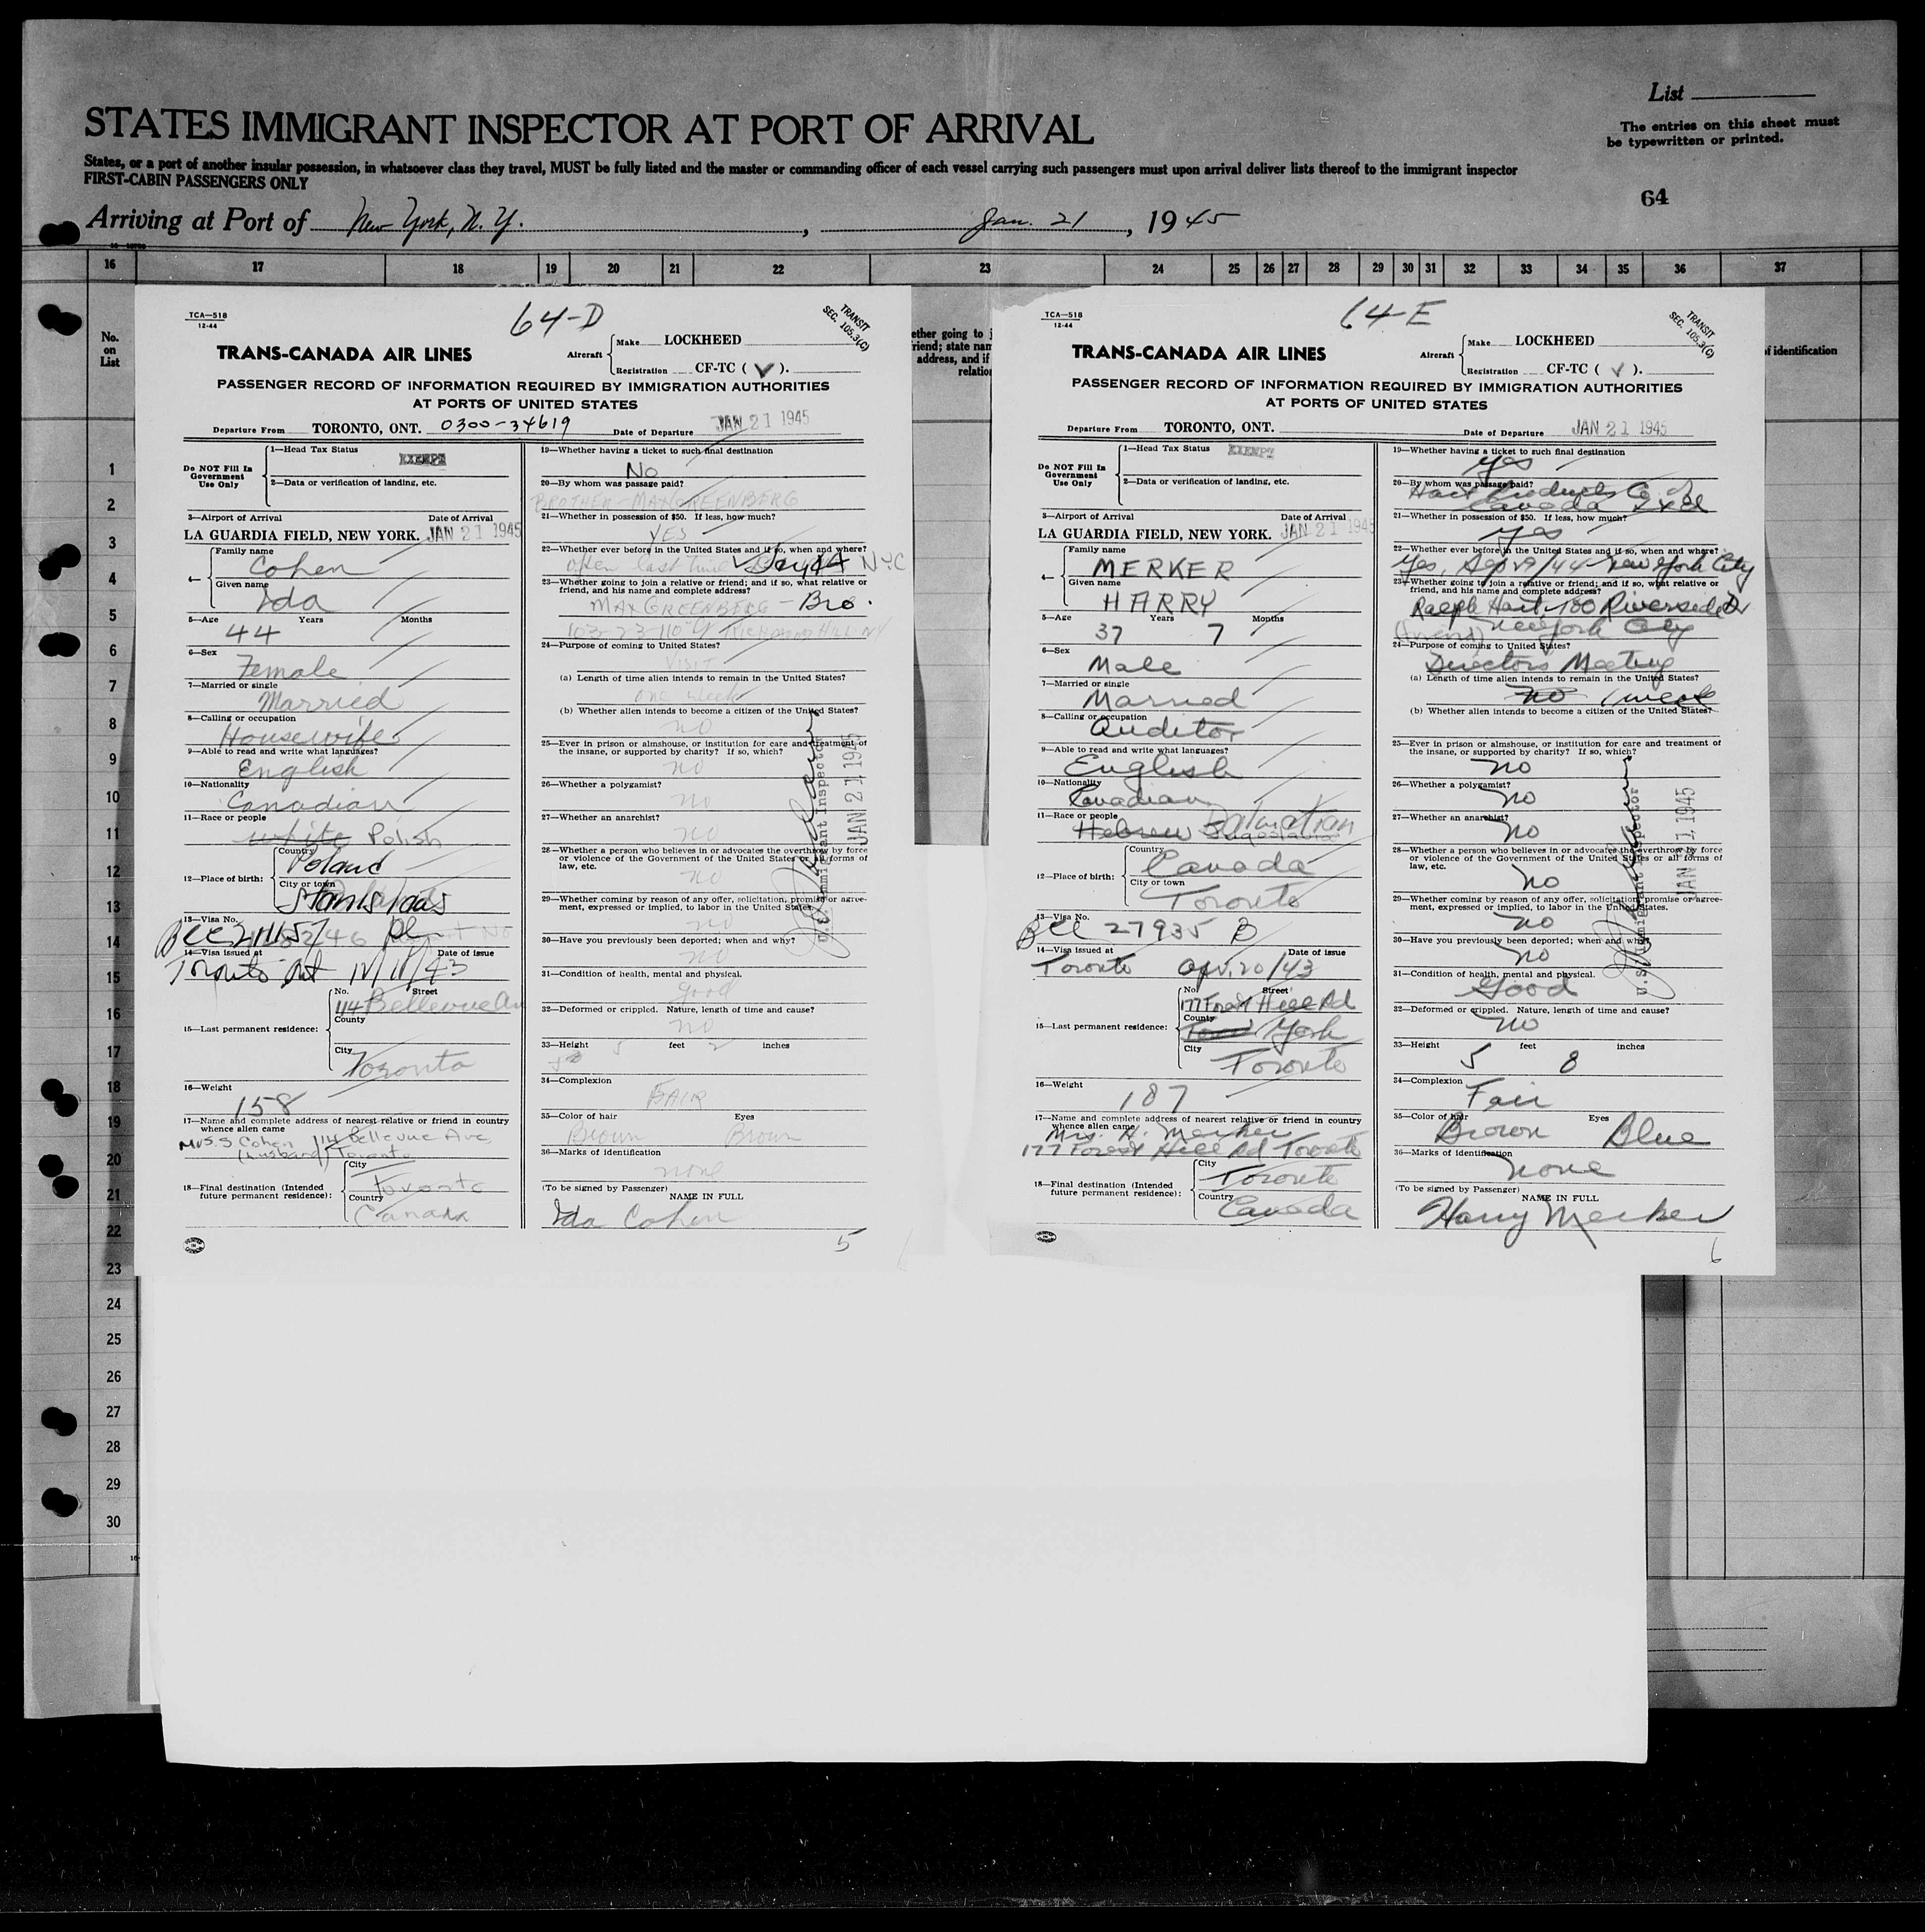 List
STATES IMMIGRANT INSPECTOR AT PORT OF ARRIVAL
The entries on this sheet must
be typewritten or printed.
States, or a port of another insular possession, in whatsoever class they travel, MUST be fully listed and the master or commanding officer of each vessel carrying such passengers must upon arrival deliver lists thereof to the immigrant inspector
FIRST-CABIN PASSENGERS ONLY
64
Arriving at Port of New York, N. Y., Jan. 21, 1945
16 17 18 19 20 21 22 23 24 25 26 27 28 29 30 31 32 33 34 35 36 37
No.
on
List
1
2
3
4
5
6
7
8
9
10
11
12
13
14
15
16
17
18
19
20
21
22
23
24
25
26
27
28
29
30
64-D
TCA—518
12-44
TRANSIT
SEC. 105.3(C)
TRANS-CANADA AIR LINES
Aircraft
Make LOCKHEED
Registration CF-TC ( ✓ ).
PASSENGER RECORD OF INFORMATION REQUIRED BY IMMIGRATION AUTHORITIES
AT PORTS OF UNITED STATES
Departure From TORONTO, ONT. 0300-34619 Date of Departure JAN 21 1945
Do NOT Fill In
Government
Use Only
1—Head Tax Status EXEMPT
2—Data or verification of landing, etc.
3—Airport of Arrival Date of Arrival
LA GUARDIA FIELD, NEW YORK. JAN 21 1945
4—
Family name
Cohen
Given name
Ida
5—Age Years Months
44
6—Sex
Female
7—Married or single
Married
8—Calling or occupation
Housewife
9—Able to read and write what languages?
English
10—Nationality
Canadian
11—Race or people
white Polish
12—Place of birth:
Country
Poland
City or town
13—Visa No.
14—Visa issued at Date of issue
Toronto Ont
15—Last permanent residence:
No. Street
114 Bellevue Av
County
City
Toronto
16—Weight
158
17—Name and complete address of nearest relative or friend in country
whence alien came
Mr S. Cohen 114 Bellevue Ave
(husband) Toronto
18—Final destination (Intended
future permanent residence):
City
Toronto
Country
Canada
19—Whether having a ticket to such final destination
No
20—By whom was passage paid?
BROTHER - MAX GREENBERG
21—Whether in possession of $50. If less, how much?
YES
22—Whether ever before in the United States and if so, when and where?
often last time NYC
23—Whether going to join a relative or friend; and if so, what relative or
friend, and his name and complete address?
MAX GREENBERG - Bro.
103-23-110 St RICHMOND HILL NY
24—Purpose of coming to United States?
VISIT
(a) Length of time alien intends to remain in the United States?
one week
(b) Whether alien intends to become a citizen of the United States?
no
25—Ever in prison or almshouse, or institution for care and treatment of
the insane, or supported by charity? If so, which?
no
26—Whether a polygamist?
no
27—Whether an anarchist?
no
28—Whether a person who believes in or advocates the overthrow by force
or violence of the Government of the United States or all forms of
law, etc.
no
29—Whether coming by reason of any offer, solicitation, promise or agree-
ment, expressed or implied, to labor in the United States.
no
30—Have you previously been deported; when and why?
no
31—Condition of health, mental and physical.
good
32—Deformed or crippled. Nature, length of time and cause?
no
33—Height 5 feet 2 inches
34—Complexion
FAIR
35—Color of hair Eyes
Brown Brown
36—Marks of identification
none
(To be signed by Passenger)
NAME IN FULL
Ida Cohen
5
U.S. Immigrant Inspector
JAN 21 1945
ether going to j
riend; state nam
address, and if
relation
64-E
TCA—518
12-44
TRANSIT
SEC. 105.3(C)
TRANS-CANADA AIR LINES
Aircraft
Make LOCKHEED
Registration CF-TC ( ✓ ).
PASSENGER RECORD OF INFORMATION REQUIRED BY IMMIGRATION AUTHORITIES
AT PORTS OF UNITED STATES
Departure From TORONTO, ONT. Date of Departure JAN 21 1945
Do NOT Fill In
Government
Use Only
1—Head Tax Status EXEMPT
2—Data or verification of landing, etc.
3—Airport of Arrival Date of Arrival
LA GUARDIA FIELD, NEW YORK. JAN 21 1945
4—
Family name
MERKER
Given name
HARRY
5—Age Years Months
37 7
6—Sex
Male
7—Married or single
Married
8—Calling or occupation
Auditor
9—Able to read and write what languages?
English
10—Nationality
Canadian
11—Race or people
Hebrew Dalmatian
12—Place of birth:
Country
Canada
City or town
Toronto
13—Visa No.
BCC 27935 B
14—Visa issued at Date of issue
Toronto Apr. 20/43
15—Last permanent residence:
No. Street
177 Forest Hill Rd
County
York
City
Toronto
16—Weight
187
17—Name and complete address of nearest relative or friend in country
whence alien came
Mrs. H. Merker
177 Forest Hill Rd Toronto
18—Final destination (Intended
future permanent residence):
City
Toronto
Country
Canada
19—Whether having a ticket to such final destination
yes
20—By whom was passage paid?
Hart Products Co of
Canada Ltd
21—Whether in possession of $50. If less, how much?
yes
22—Whether ever before in the United States and if so, when and where?
Yes, Sep 29/44 New York City
23—Whether going to join a relative or friend; and if so, what relative or
friend, and his name and complete address?
Ralph Hart, 180 Riverside Dr
(friend) New York City
24—Purpose of coming to United States?
Directors Meeting
(a) Length of time alien intends to remain in the United States?
no 1 week
(b) Whether alien intends to become a citizen of the United States?
25—Ever in prison or almshouse, or institution for care and treatment of
the insane, or supported by charity? If so, which?
no
26—Whether a polygamist?
no
27—Whether an anarchist?
no
28—Whether a person who believes in or advocates the overthrow by force
or violence of the Government of the United States or all forms of
law, etc.
no
29—Whether coming by reason of any offer, solicitation, promise or agree-
ment, expressed or implied, to labor in the United States.
no
30—Have you previously been deported; when and why?
no
31—Condition of health, mental and physical.
Good
32—Deformed or crippled. Nature, length of time and cause?
no
33—Height 5 feet 8 inches
34—Complexion
Fair
35—Color of hair Eyes
Brown Blue
36—Marks of identification
none
(To be signed by Passenger)
NAME IN FULL
Harry Merker
6
U.S. Immigrant Inspector
JAN 21 1945
of identification